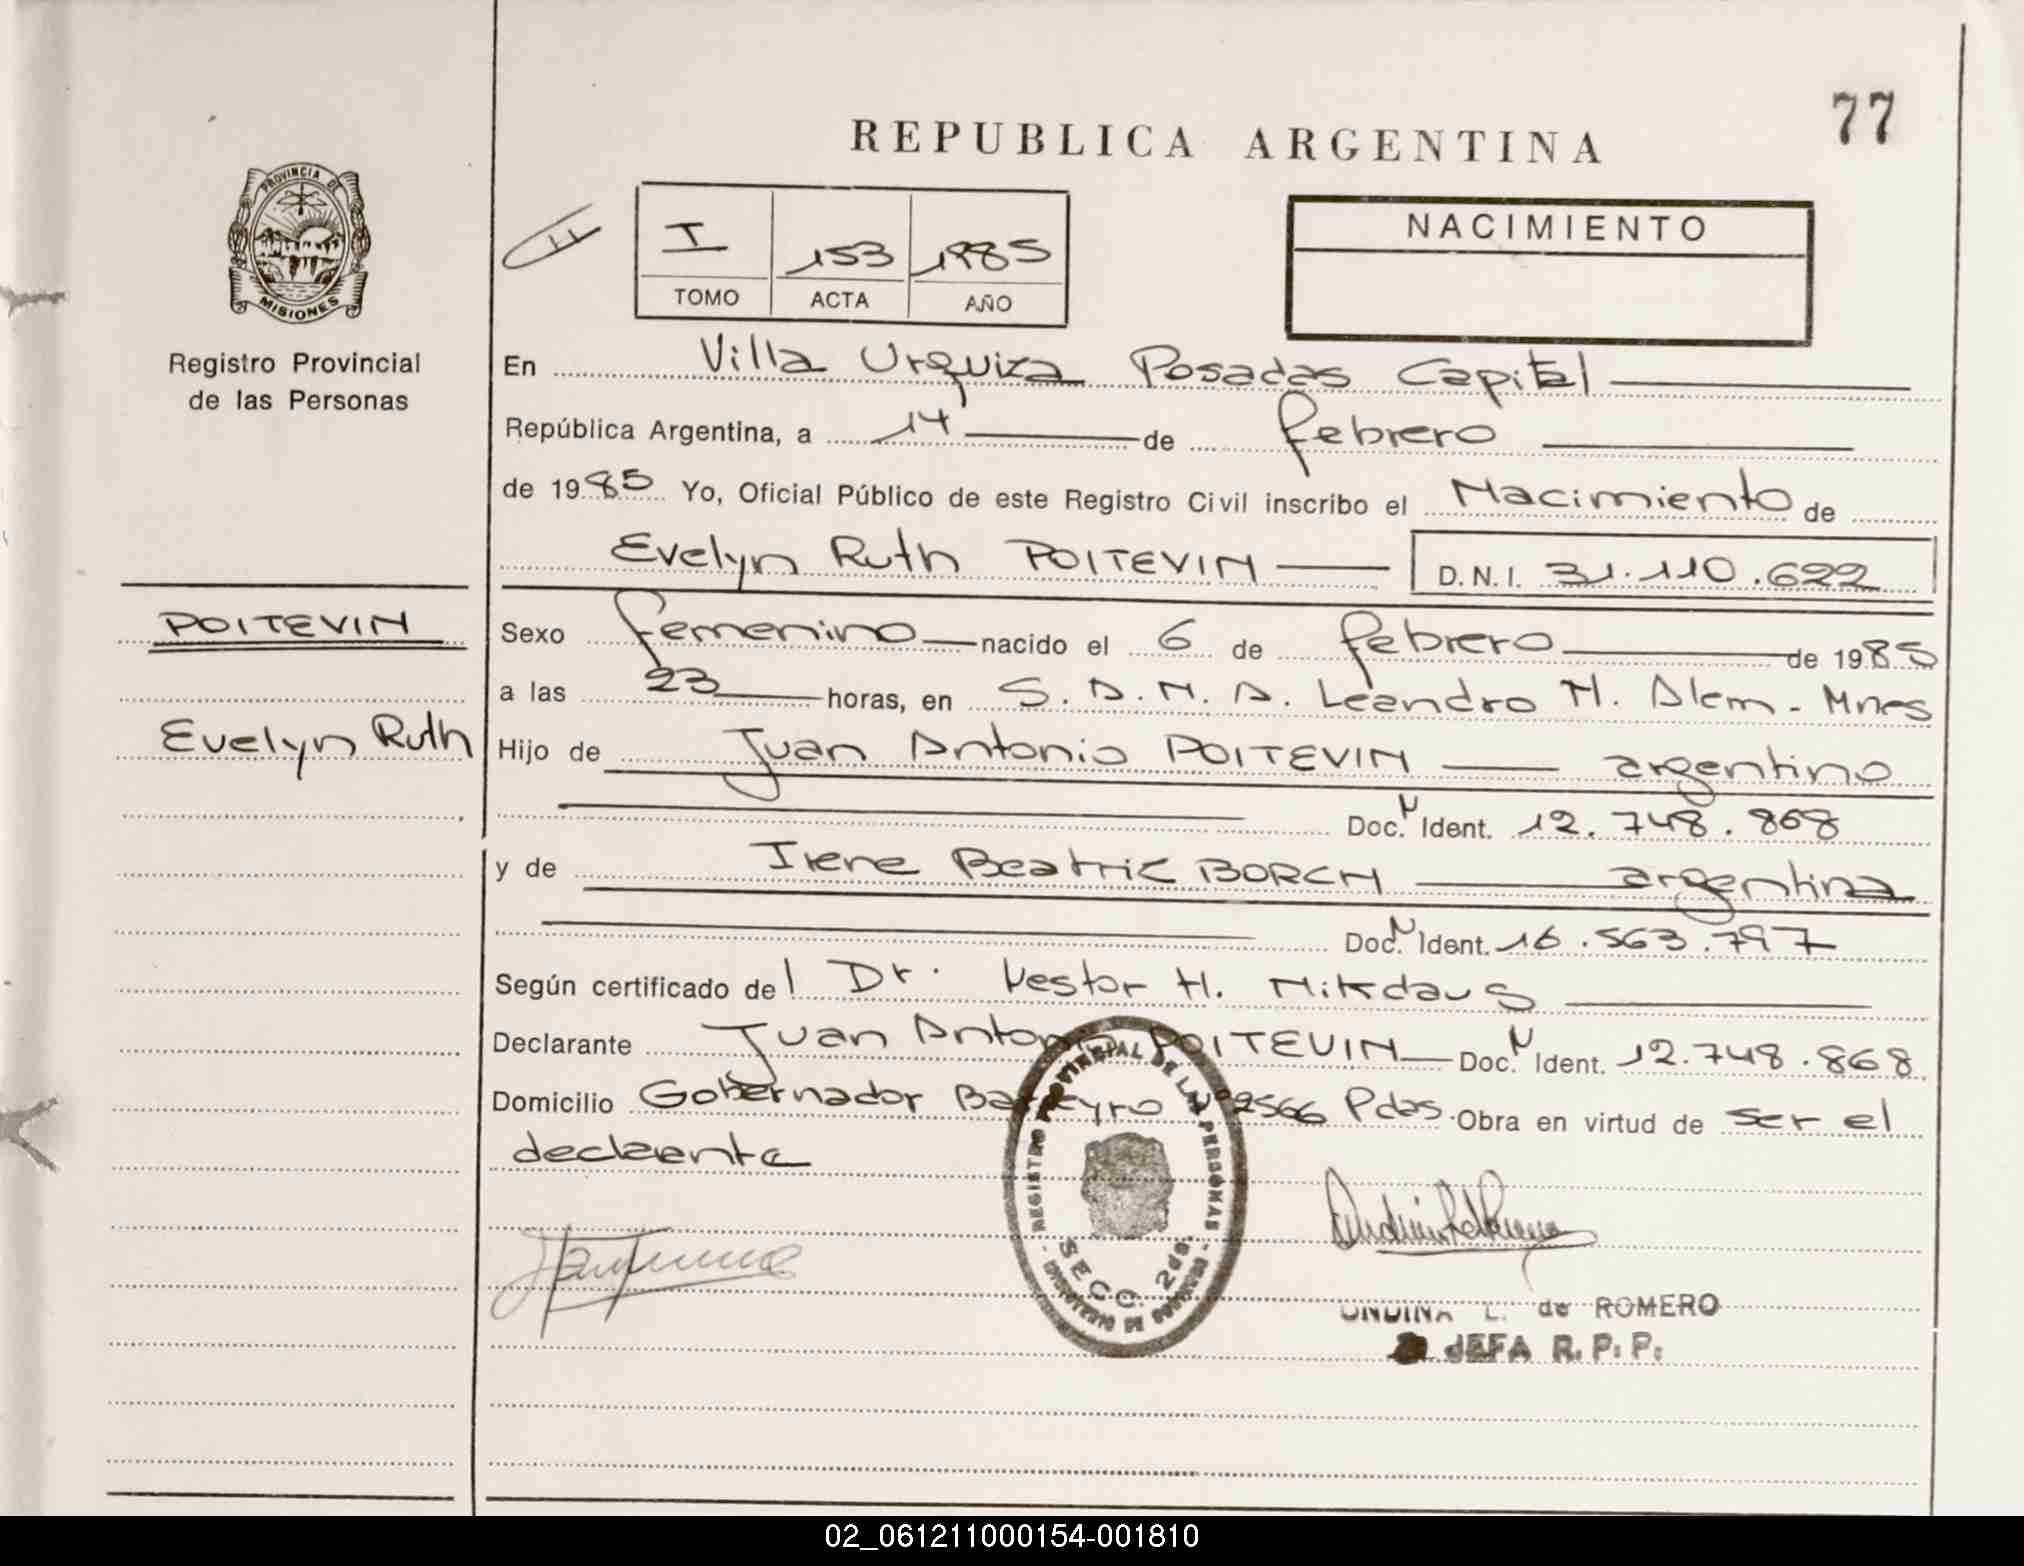 77
REPUBLICA ARGENTINA
PROVINCIA DE
MISIONES
Registro Provincial
de las Personas
I 153 1985
TOMO ACTA AÑO
NACIMIENTO
En Villa Urquiza Posadas Capital
República Argentina, a 14 de febrero
de 1985 Yo, Oficial Público de este Registro Civil inscribo el Nacimiento de
Evelyn Ruth POITEVIN D.N.I. 31.110.622
POITEVIN
Evelyn Ruth
Sexo femenino nacido el 6 de febrero de 1985
a las 23 horas, en S.A.M.A. Leandro N. Alem - Mnes
Hijo de Juan Antonio POITEVIN argentino
Doc. N Ident. 12.748.868
y de Irene Beatriz BORCH argentina
Doc. N Ident. 16.563.797
Según certificado del Dr. Nestor H.
Declarante Juan Antonio POITEVIN Doc. N Ident. 12.748.868
Domicilio Gobernador Barreyro Nº 2566 Pdas. Obra en virtud de ser el
declarente
REGISTRO PROVINCIAL DE LAS PERSONAS
SECC. 2da.
ONDINA L. de ROMERO
JEFA R.P.P.
02_061211000154-001810